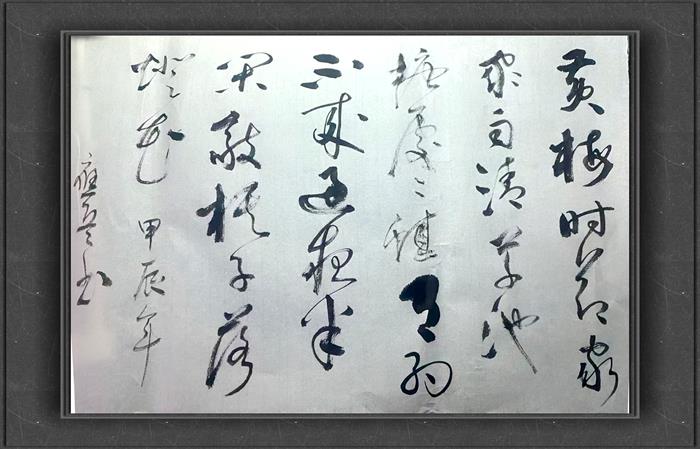 黄梅时节家
家雨清草池
塘處々蛙有约
不来过夜半
闲敲棋子落
燈花 甲辰年
书